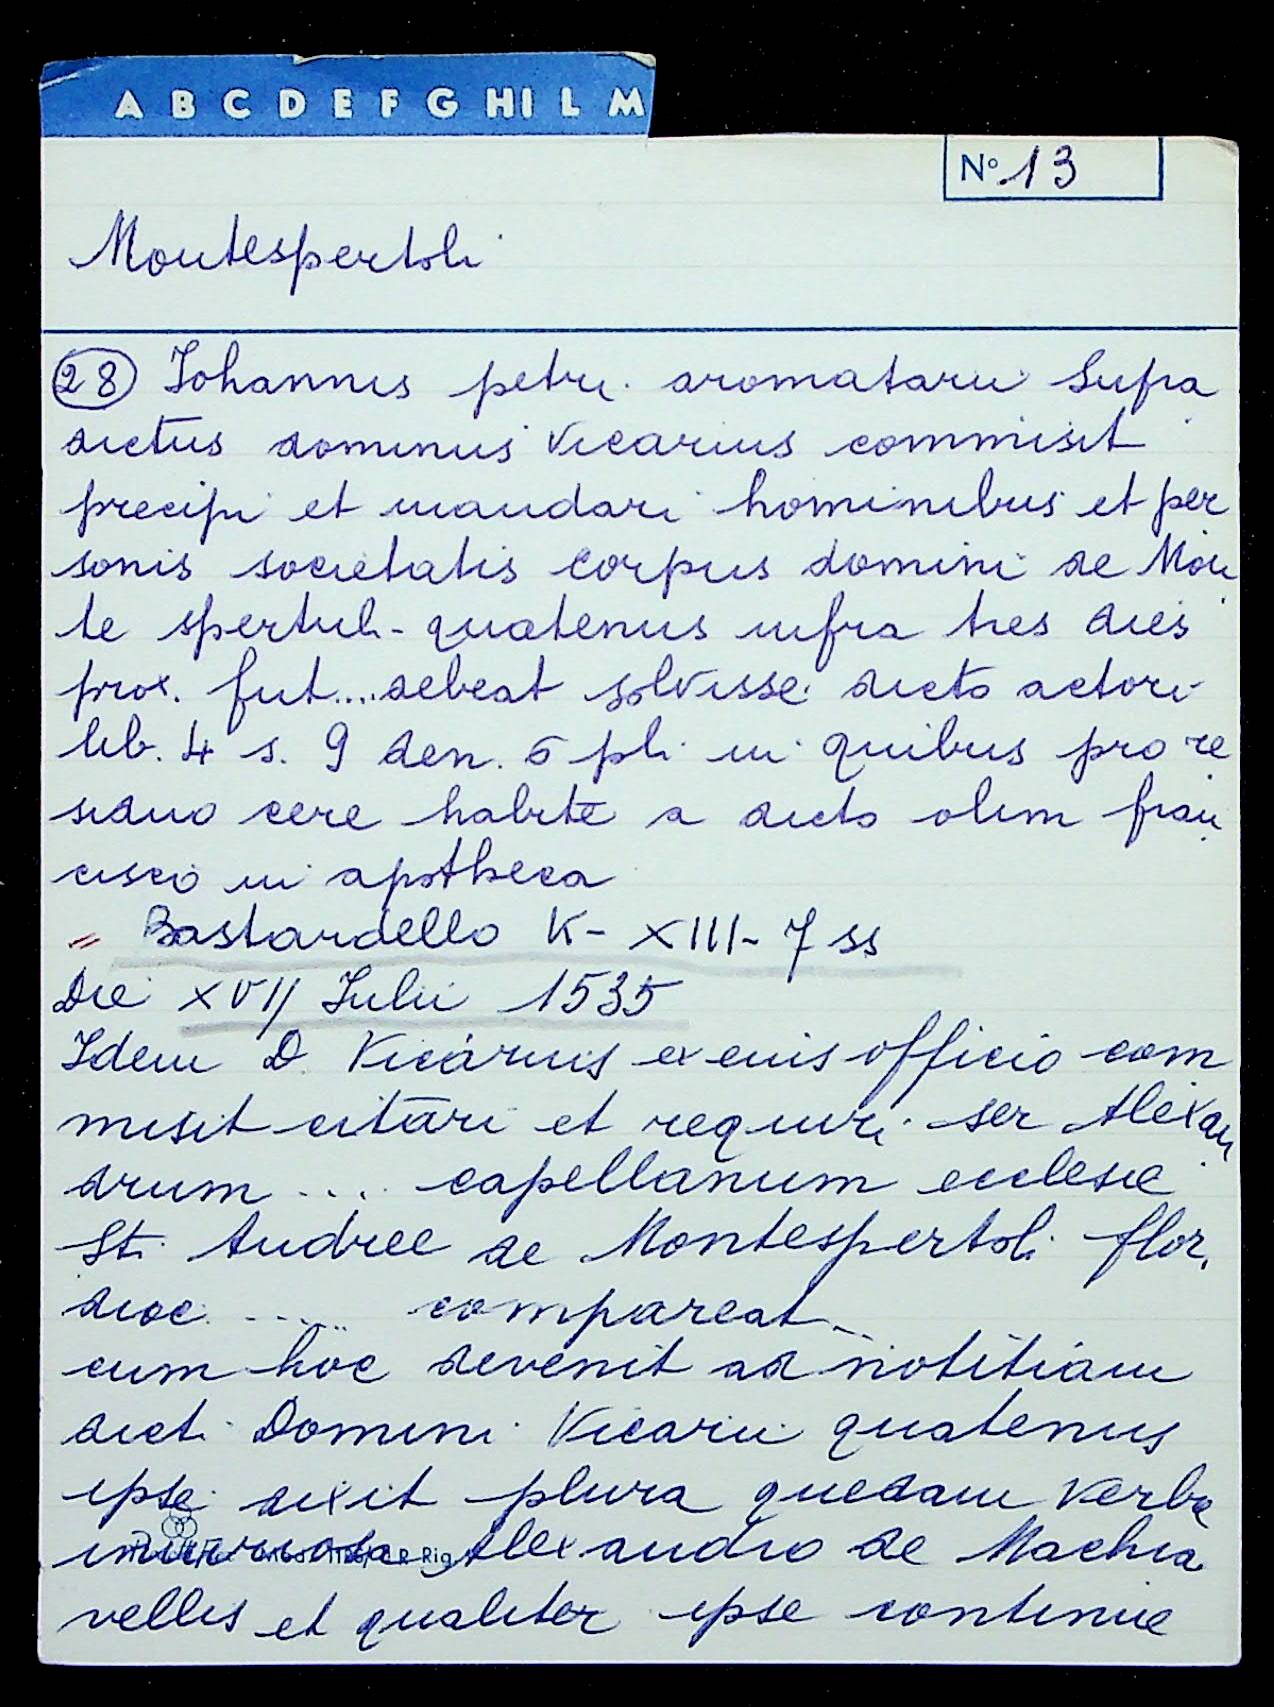 A B C D E F G HI L M
N° 13
Montespertoli
28 Johannis petri aromatarii Supra
dictus dominus Vicarius commisit
precipi et mandari hominibus et per
sonis societatis corpus domini de Mon
te spertuli - quatenus infra tres dies
prox. fut... debeat solvisse dicto actori
lib. 4 s. 9 den. 6 pli in quibus pro re
siduo cere habite a dicto olim fran
cisco in apotheca
" Bastardello K - XIII - 7 ss
Die XVII Julii 1535
Idem D. Vicarius ex eius officio com
misit citari et requiri ser Alexan
drum .... capellanum ecclesie
Sti Andree de Montespertoli flor.
dioc. ..... compareat ..
cum hoc devenit ad notitiam
dicti Domini Vicarii quatenus
ipse dixit plura quedam Verba
iniuriosa Alexandro de Machia
vellis et qualiter ipse continue